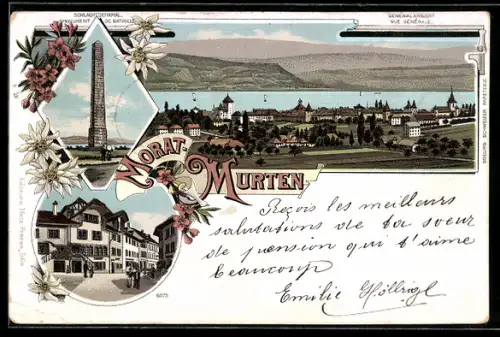 SCHLACHTDENKMAL.
MONUMENT DE BATAILLE.
GENERALANSICHT
VUE GÉNÉRALE.
MORAT
MURTEN
Reçois les meilleurs
salutations de ta soeur
de pension qui t'aime
beaucoup
Emilie Höllrigl
6073